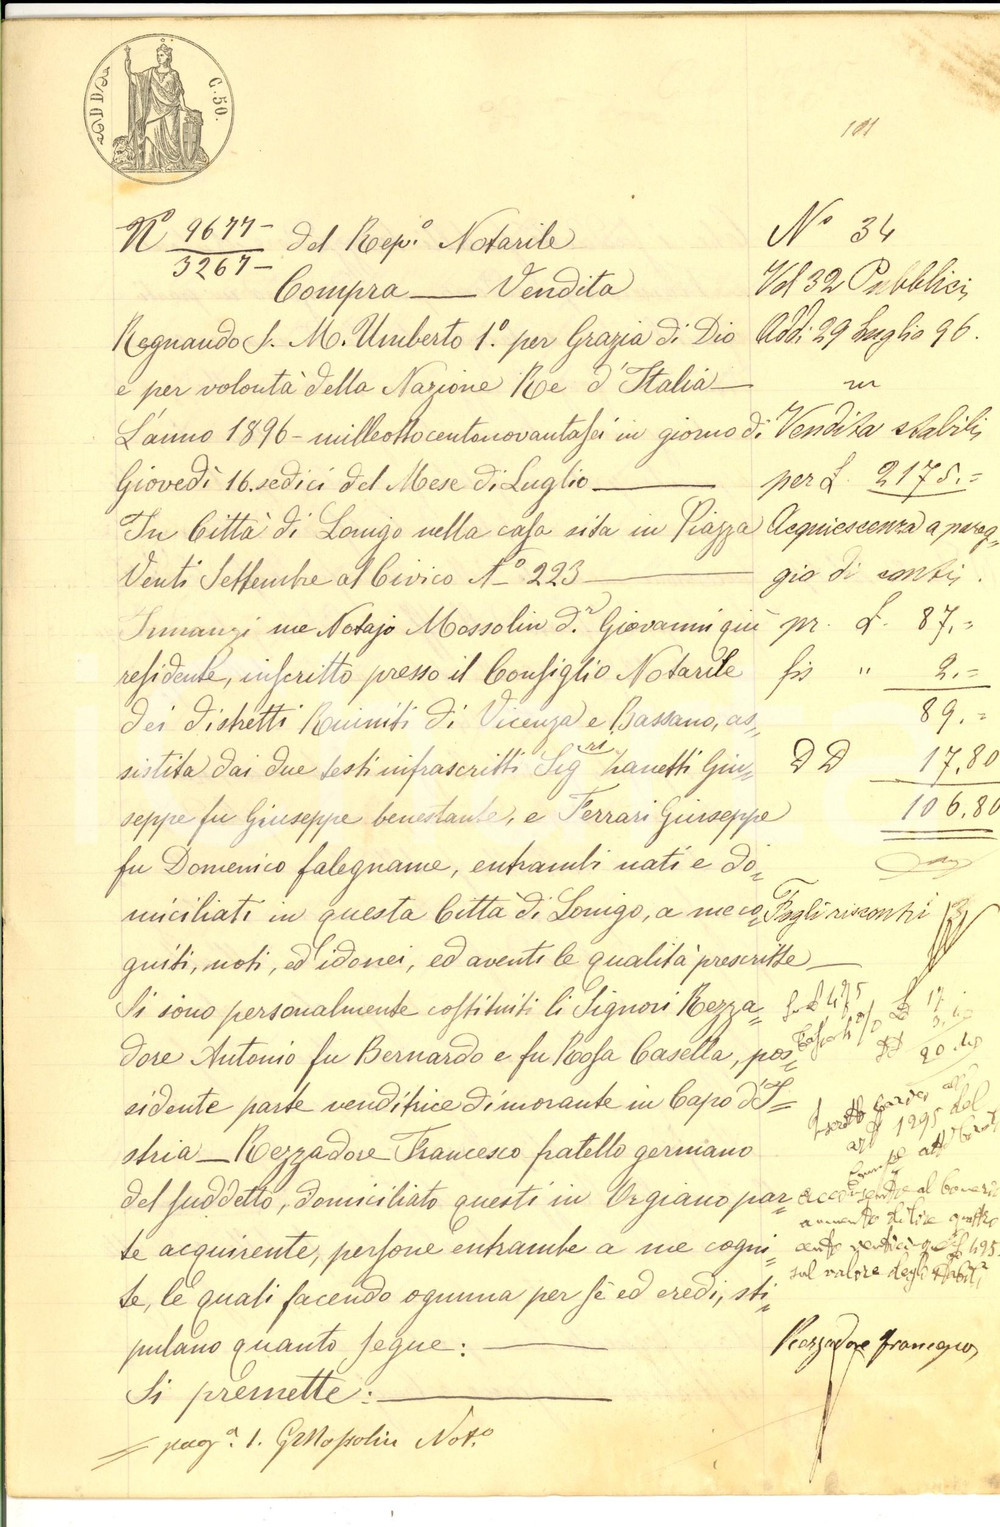 C. 50.
101
Nº 9677-
3267-
del Rep.º Notarile
Compra — Vendita
Regnando S. M. Umberto 1.º per Grazia di Dio
e per volontà della Nazione Re d'Italia —
L'anno 1896 - milleottocentonovantasei in giorno di
Giovedì 16. sedici del Mese di Luglio —
In Città di Lonigo nella casa sita in Piazza
Venti Settembre al Civico Nº 223 —
Innanzi me Notajo Mossolin d.r Giovanni quì
residente, inscritto presso il Consiglio Notarile
dei distretti Riuniti di Vicenza e Bassano, as=
sistita dai due testi infrascritti Sig.rs Zanetti Giu=
seppe fu Giuseppe benestante, e Ferrari Giuseppe
fu Domenico falegname, entrambi nati e do=
miciliati in questa Città di Lonigo, a me co=
gniti, noti, ed idonei, ed aventi le qualità prescritte —
Si sono personalmente costituiti li Signori Rezza=
dore Antonio fu Bernardo e fu Rosa Casella, pos=
sidente parte venditrice dimorante in Capo d'I=
stria — Rezzadore Francesco fratello germano
del suddetto, domiciliato questi in Orgiano par=
te acquirente, persone entrambe a me cogni=
te, le quali facendo ognuna per sè ed eredi, sti=
pulano quanto segue: —
Si premette: —
pag.a 1. GMossolin Not.º
Nº 34
Vol 32 Pubblici
Addi 29 Luglio 96.
Vendita stabili
per £. 2175.=
Acquiescenza a pareg=
gio di conti.
pr. £. 87.=
fis " 2.=
89.=
DD 17,80
106,80
Fogli riscontri 3
£ 17
20.40
1295 del
aumento di lire quattro
cento venticinque £ 495.
sul valore degli stabili
Rezzadore Francesco